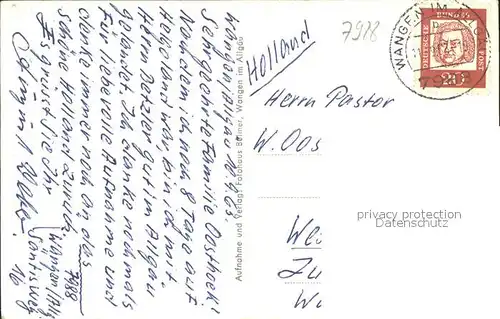 Wangen/Allgäu 10.9.63
Sehr geehrte Familie Oosthoek!
Nachdem ich noch 8 Tage auf
Helgoland war, bin ich mit
Herrn Detzler gut im Allgäu
gelandet. Ich danke nochmals
für liebevolle Aufnahme und
denke immer noch an das
schöne Holland zurück.
Es grüsst Sie Ihr
Wangen/Allg.
7988
16
Aufnahme und Verlag: Fotohaus Bulmer, Wangen im Allgäu
7988
Holland
Herrn Pastor
W. Oos
We
Zu
privacy protection
watermark
WANGEN IM
DEUTSCHE
BUNDES
POST
20